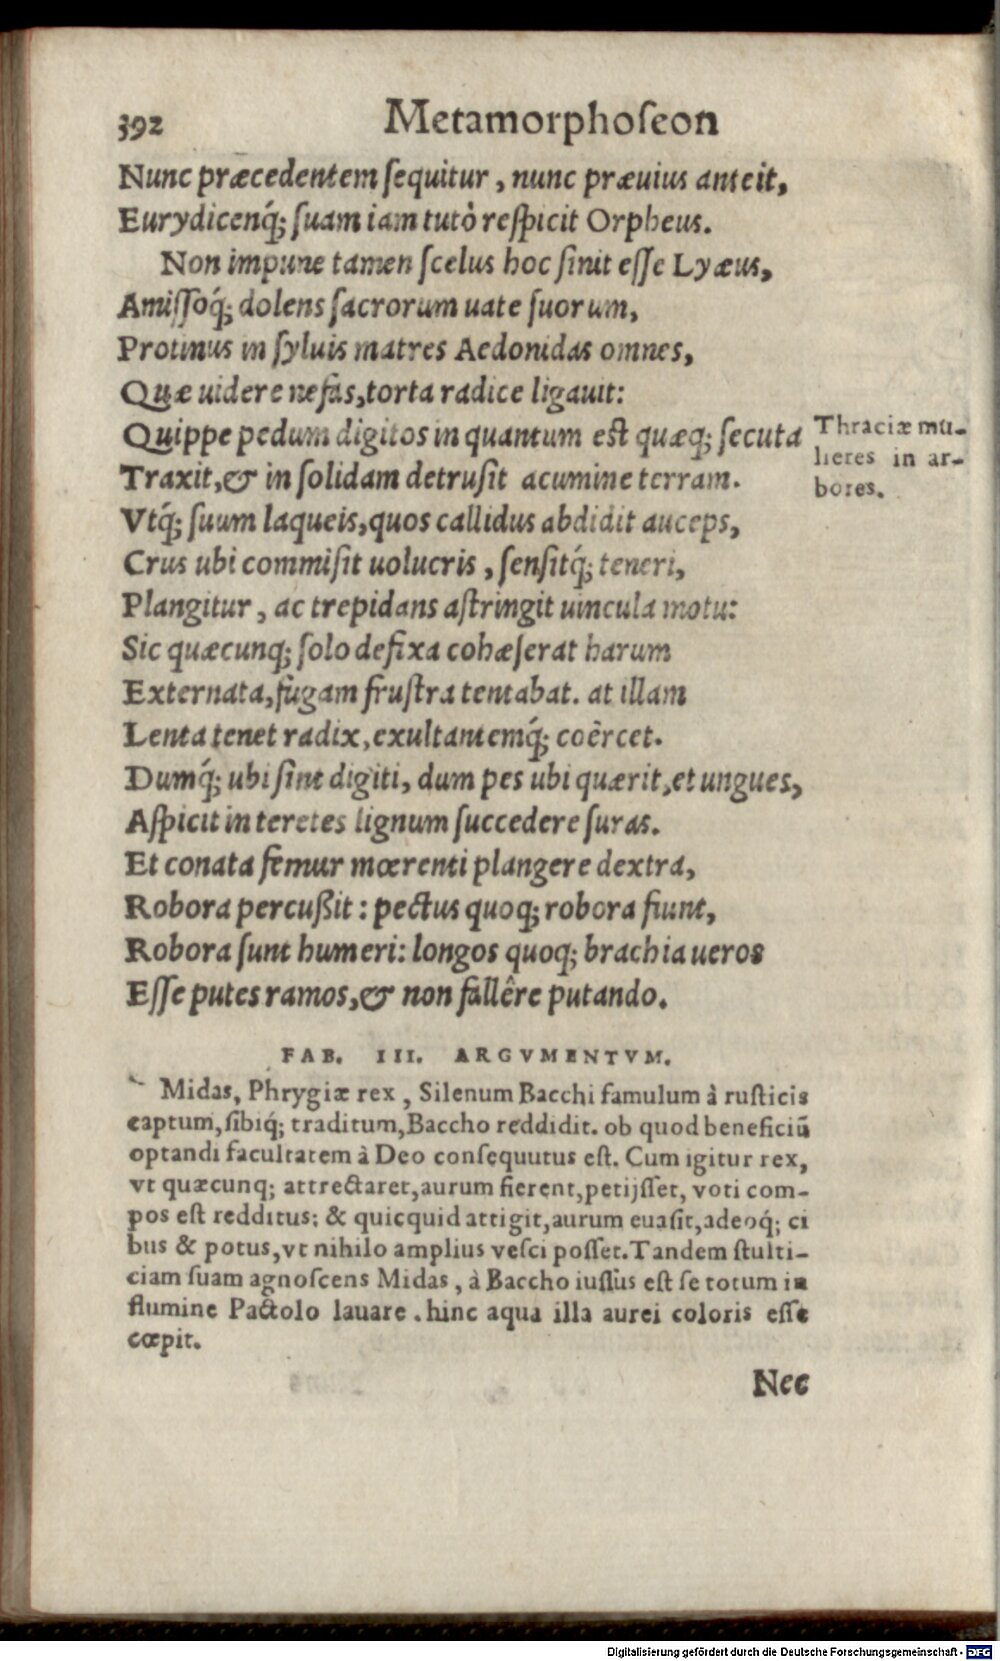 392 Metamorphoſeon
Nunc præcedentem ſequitur, nunc præuius anteit,
Eurydicenq́; ſuam iam tutò reſpicit Orpheus.
Non impune tamen ſcelus hoc ſinit eſſe Lyæus,
Amiſſoq́; dolens ſacrorum uate ſuorum,
Protinus in ſyluis matres Aedonidas omnes,
Quæ uidere nefas, torta radice ligauit:
Quippe pedum digitos in quantum eſt quæq; ſecuta
Traxit, & in ſolidam detruſit acumine terram.
Vtq́; ſuum laqueis, quos callidus abdidit auceps,
Crus ubi commiſit uolucris, ſenſitq́; teneri,
Plangitur, ac trepidans aſtringit uincula motu:
Sic quæcunq; ſolo defixa cohæſerat harum
Externata, fugam fruſtra tentabat. at illam
Lenta tenet radix, exultantemq́; coërcet.
Dumq́; ubi ſint digiti, dum pes ubi quærit, et ungues,
Aſpicit in teretes lignum ſuccedere ſuras.
Et conata femur mœrenti plangere dextra,
Robora percußit: pectus quoq; robora fiunt,
Robora ſunt humeri: longos quoq; brachia ueros
Eſſe putes ramos, & non fallêre putando.
Thraciæ mu-
lieres in ar-
bores.
FAB. III. ARGVMENTVM.
Midas, Phrygiæ rex, Silenum Bacchi famulum à ruſticis
captum, ſibiq́; traditum, Baccho reddidit. ob quod beneficiū
optandi facultatem à Deo conſequutus eſt. Cum igitur rex,
vt quæcunq; attrectaret, aurum fierent, petijſſet, voti com-
pos eſt redditus: & quicquid attigit, aurum euaſit, adeoq́; ci
bus & potus, vt nihilo amplius veſci poſſet. Tandem ſtulti-
ciam ſuam agnoſcens Midas, à Baccho iuſſus eſt ſe totum in
flumine Pactolo lauare. hinc aqua illa aurei coloris eſſe
cœpit.
Nec
Digitalisierung gefördert durch die Deutsche Forschungsgemeinschaft - DFG